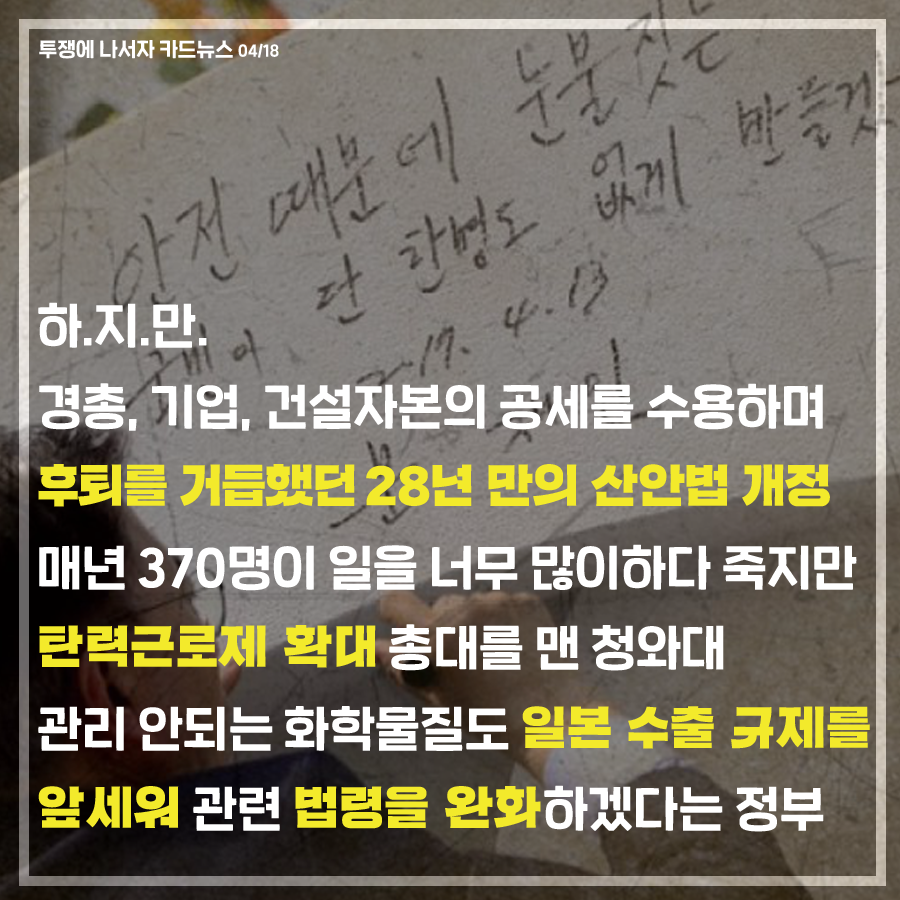 투쟁에 나서자 카드뉴스 04/18
안전 때문에 눈물짓는
단 한명도 없게 만들겠
17. 4. 13
하.지.만.
경총, 기업, 건설자본의 공세를 수용하며
후퇴를 거듭했던 28년 만의 산안법 개정
매년 370명이 일을 너무 많이하다 죽지만
탄력근로제 확대 총대를 맨 청와대
관리 안되는 화학물질도 일본 수출 규제를
앞세워 관련 법령을 완화하겠다는 정부